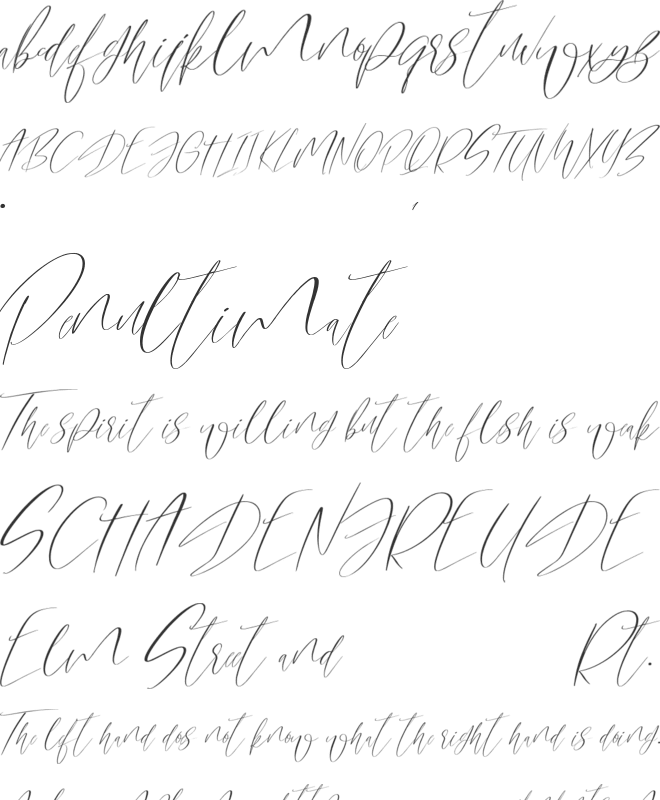 abcdefghijklmnopqrstuvwxyz
ABCDEFGHIJKLMNOPQRSTUVWXYZ
. ,
Penultimate
The spirit is willing but the flesh is weak
SCHADENFREUDE
Elm Street and Rt.
The left hand does not know what the right hand is doing.